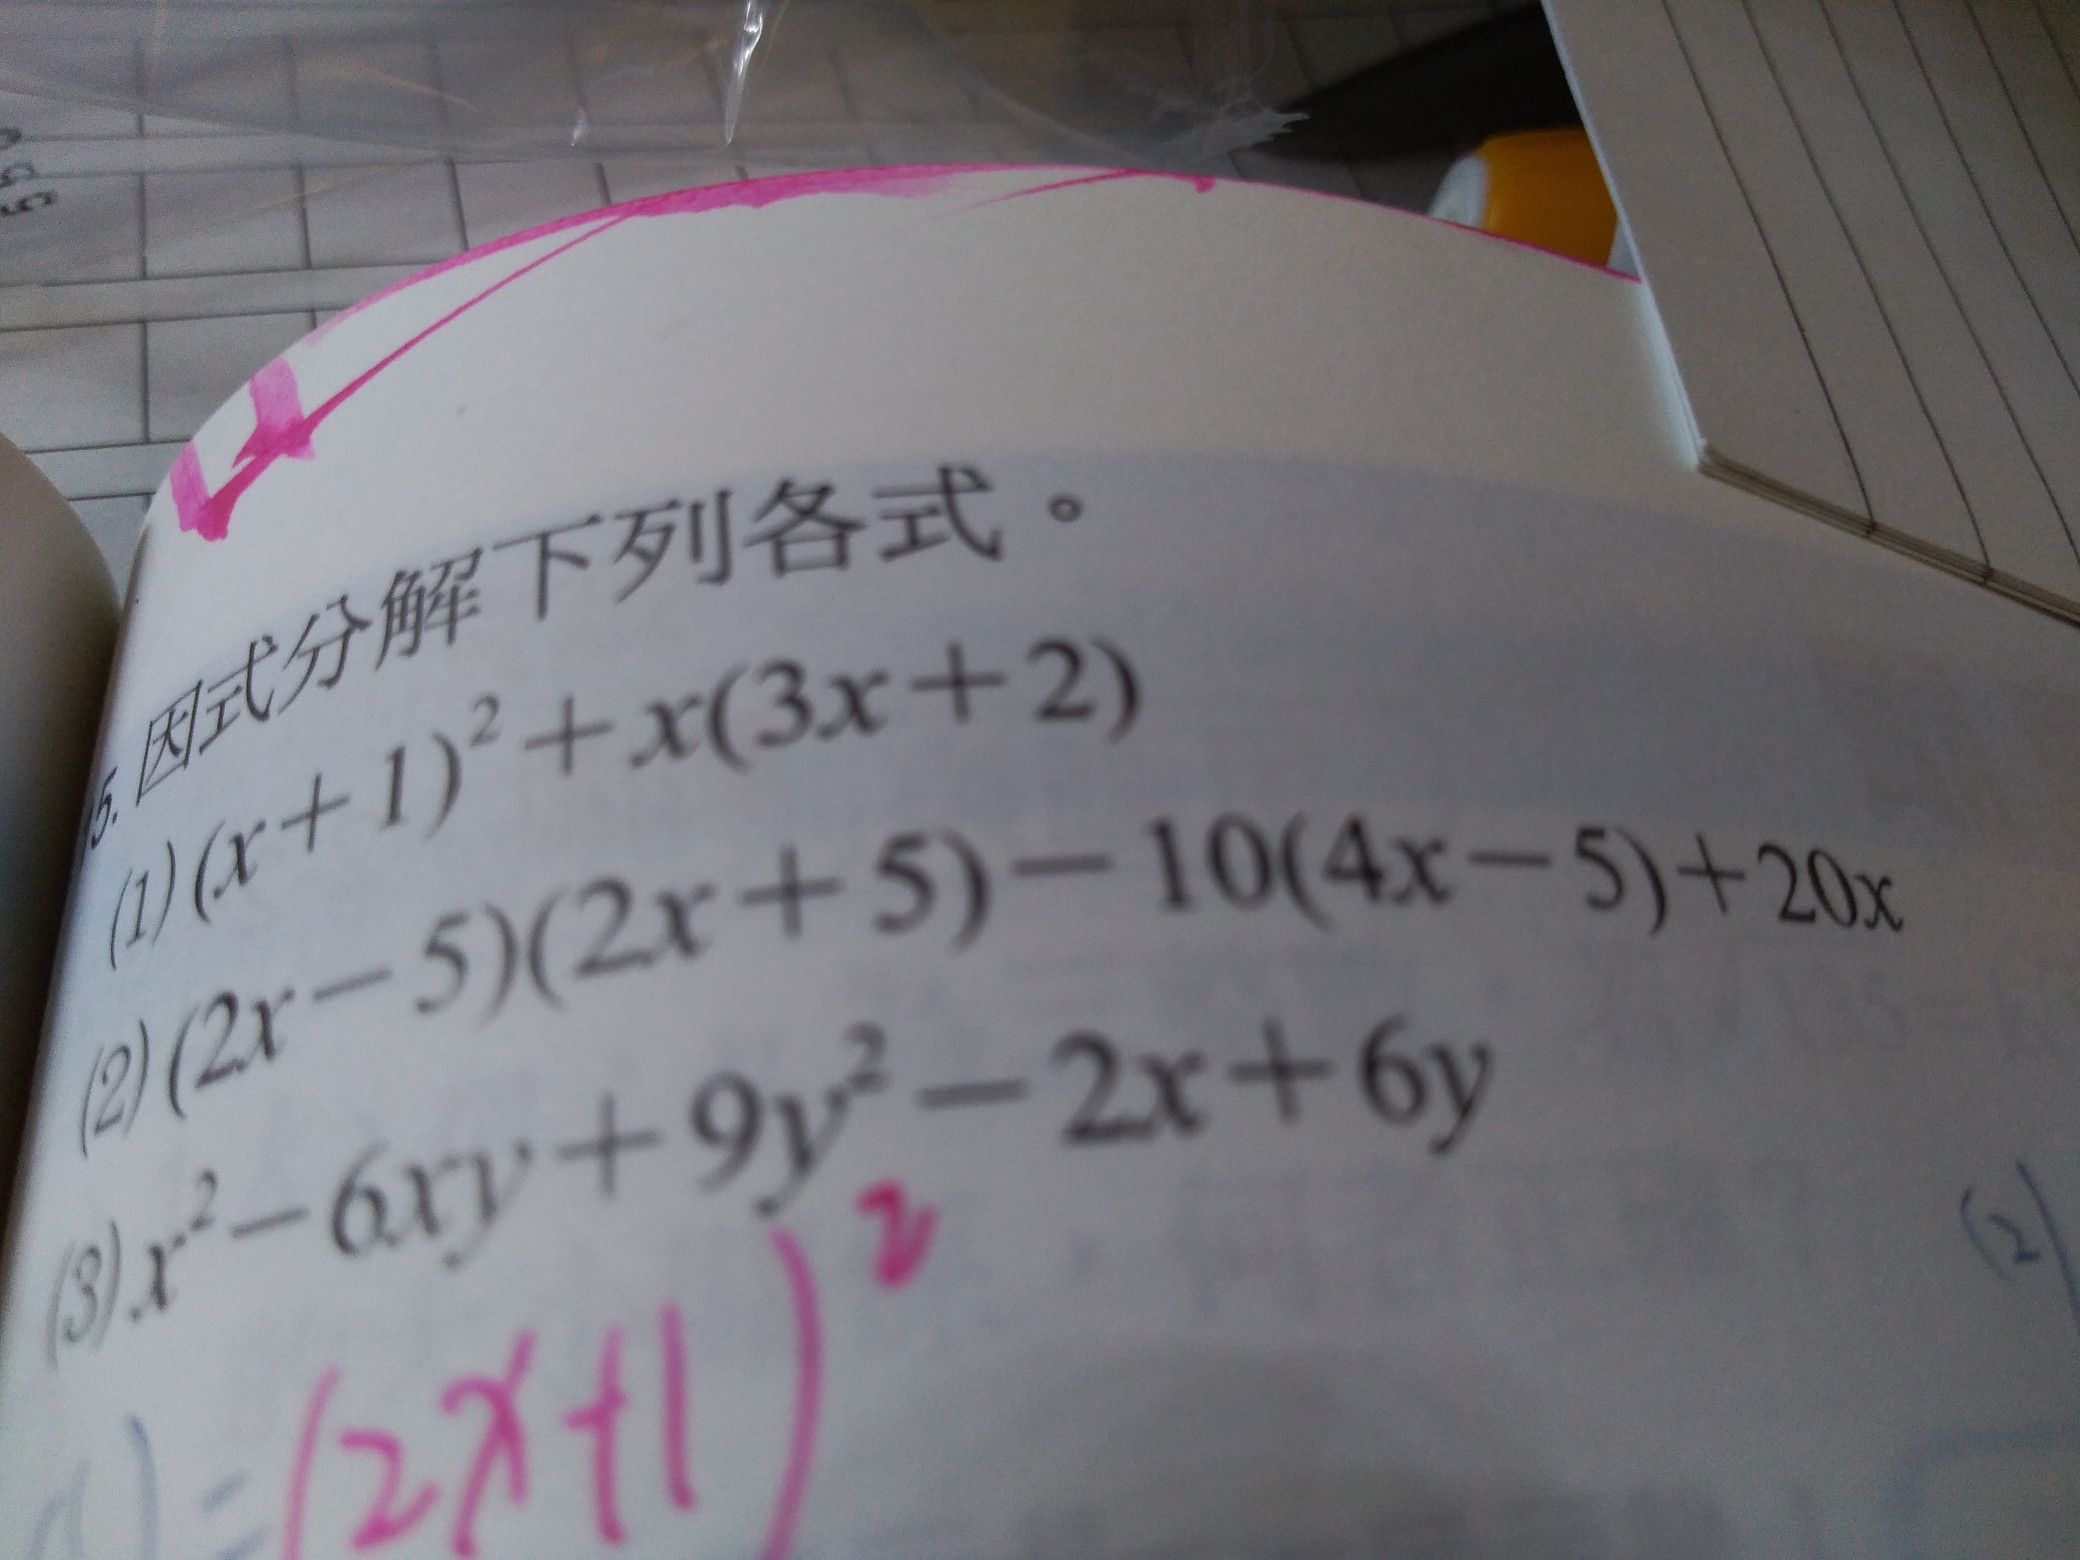 5. 因式分解下列各式。
(1) (x+1)²+x(3x+2)
(2) (2x-5)(2x+5)-10(4x-5)+20x
(3) x²-6xy+9y²-2x+6y
(1)= (2x+1)²
(2)